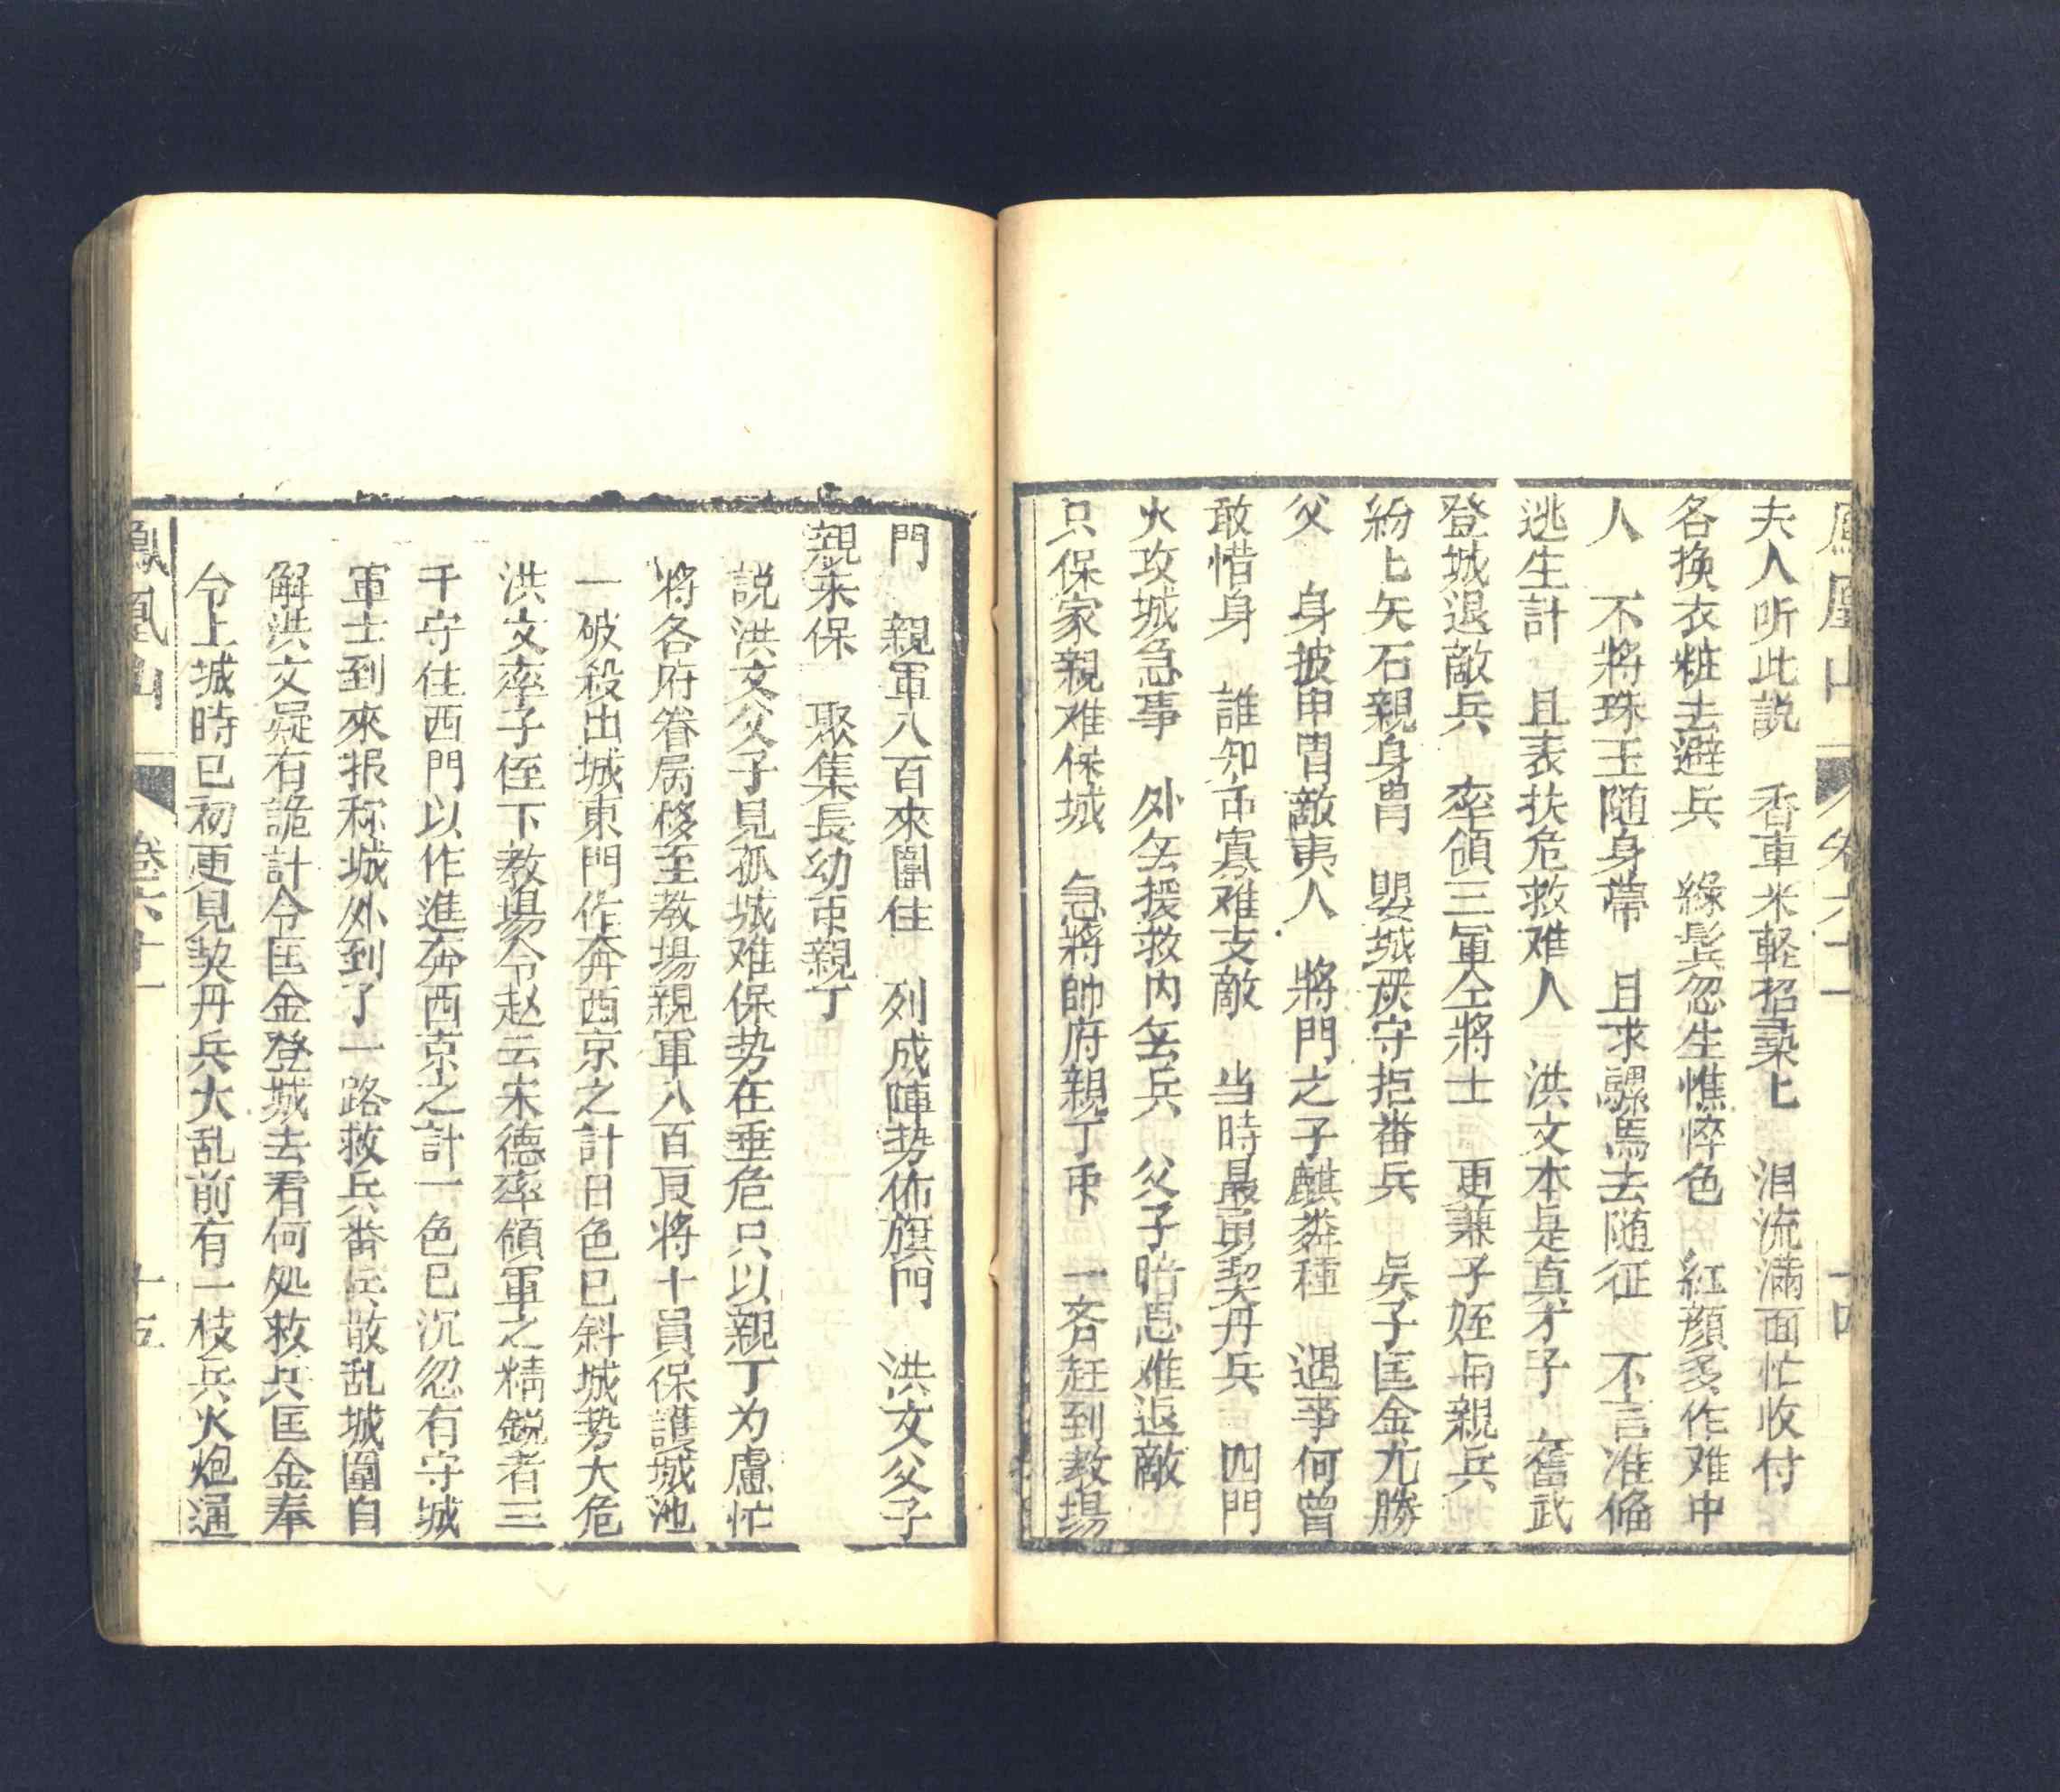 鳳凰山 卷六十一 十四
夫人听此説 香車米軽招 上 泪流滿面忙收付
各換衣粧去避兵 綠鬓忽生憔悴色 紅顔多作难中
人 不將珠玉随身帶 且求騾馬去随征 不言准偹
逃生計 且表扶危救难人 洪文本是真才子 奮武
登城退敵兵 率領三軍仝將士 更兼子姪与親兵
紛上矢石親身冒 嬰城 守拒番兵 吳子匡金尤勝
父 身披甲冑敵夷人 將門之子麒麟種 遇事何曾
敢惜身 誰知 寡难支敵 当時最勇契丹兵 四門
火攻城急事 外無援救内無兵 父子暗思难返敵
只保家親难保城 急將帥府親丁帀 一斉赶到教場
門 親軍八百來圍住 列成陣势佈旗門 洪文父子
親来保 聚集長幼帀親丁
説洪文父子見孤城难保势在垂危只以親丁为慮忙
將各府眷屬移至教場親軍八百良將十員保護城池
一破殺出城東門作奔西京之計日色已斜城势大危
洪文率子侄下教場令赵云宋德率領軍之精鋭者三
千守住西門以作進奔西京之計一色已沉忽有守城
軍士到來报称城外到了一路救兵番兵散乱城圍自
解洪文疑有詭計令匡金登城去看何処救兵匡金奉
令上城時已初更見契丹兵大乱前有一枝兵火炮通
鳳凰山 卷六十一 十五